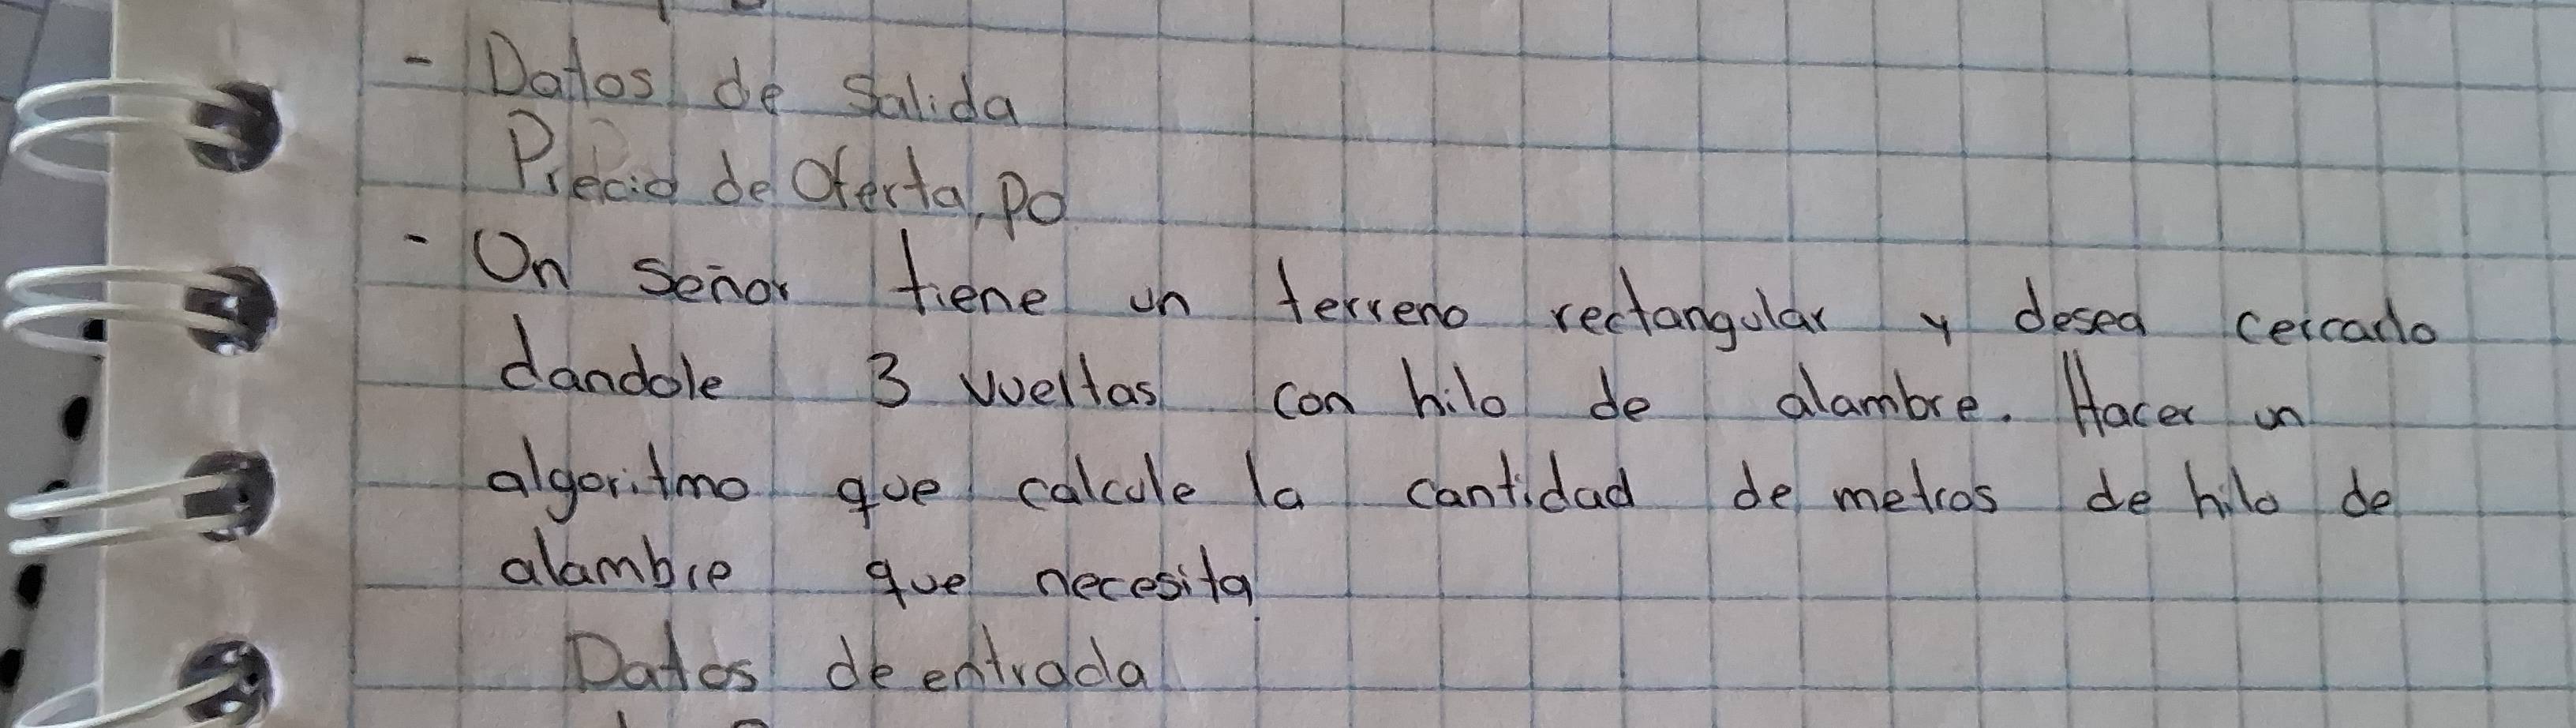 - Datos de Salida
Precio de Oferta, po
- Un señor tiene un terreno rectangular y desea cercarlo
dandole 3 vueltas con hilo de alambre. Hacer un
algoritmo que calcule la cantidad de metros de hilo de
alambre que necesita.
Datos de entrada